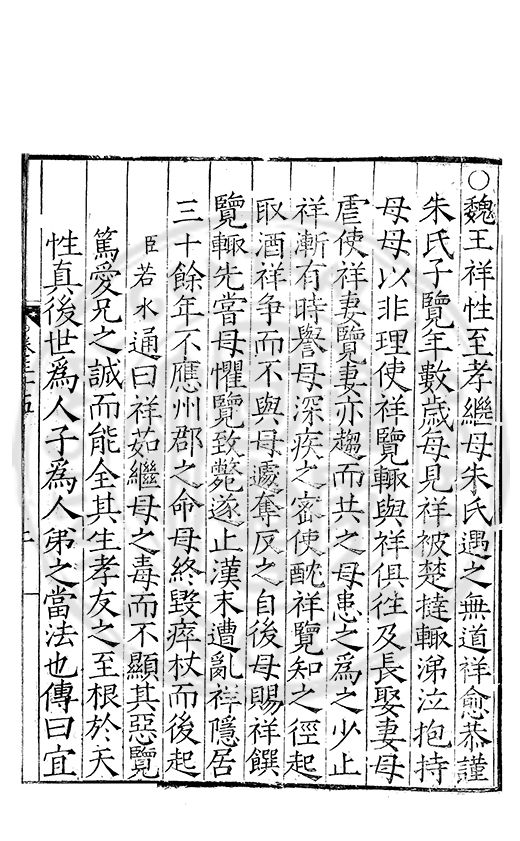 ○魏王祥性至孝繼母朱氏遇之無道祥愈恭謹
朱氏子覽年數歲每見祥被楚撻輒涕泣抱持
母母以非理使祥覽輒與祥俱往及長娶妻母
虐使祥妻覽妻亦趨而共之母患之爲之少止
祥漸有時譽母深疾之密使酖祥覽知之徑起
取酒祥爭而不與母遽奪反之自後母賜祥饌
覽輒先嘗母懼覽致斃遂止漢末遭亂祥隱居
三十餘年不應州郡之命母終毀瘁杖而後起
臣若水通曰祥茹繼母之毒而不顯其惡覽
篤愛兄之誠而能全其生孝友之至根於天
性真後世爲人子爲人弟之當法也傳曰宜